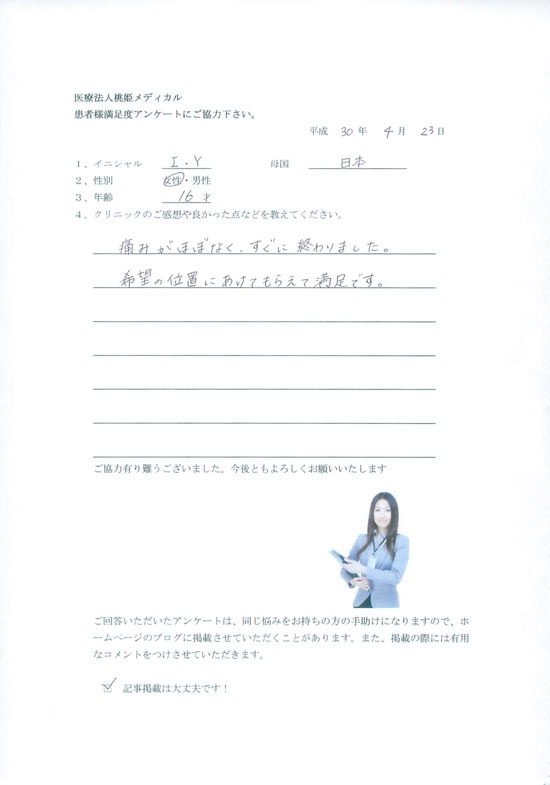 医療法人桃姫メディカル
患者様満足度アンケートにご協力下さい。
平成 30 年 4 月 23 日
1、イニシャル I・Y 母国 日本
2、性別 女性・男性
3、年齢 16才
4、クリニックのご感想や良かった点などを教えてください。
痛みがほぼなく、すぐに終わりました。
希望の位置にあけてもらえて満足です。
ご協力有り難うございました。今後ともよろしくお願いいたします
ご回答いただいたアンケートは、同じ悩みをお持ちの方の手助けになりますので、ホ
ームページのブログに掲載させていただくことがあります。また、掲載の際には有用
なコメントをつけさせていただきます。
記事掲載は大丈夫です！